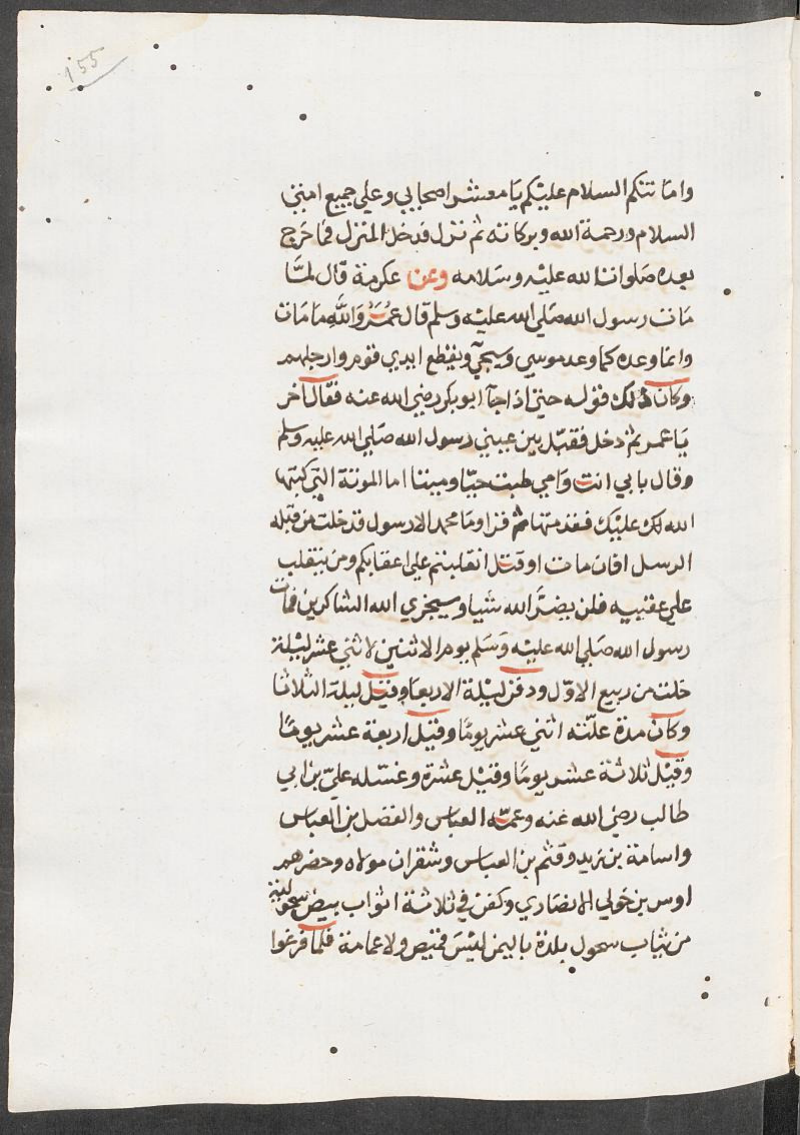 155
واماتتكم السلام عليكم يا معشر اصحابي وعلي جميع امتي
السلام ورحمة الله وبركاته ثم نزل فدخل المنزل فما خرج
بعده صلوات الله عليه وسلامه وعن عكرمة قال لمّا
مات رسول الله صلي الله عليه وسلم قال عُمَرُ وَاللهِ ما مات
وانما وعده كما وعد موسي وسيجيٓ ويقطع ايدي قوم وارجلهم
وكان ذلك قوله حتي اذا جآ ابو بكر رضي الله عنه فقال آخر
يا عمر ثم دخل فقبّل بين عيني رسول الله صلي الله عليه وسلم
وقال بابي انت وامي طبت حيّا وميتا اما الموتة التي كتبها
الله لك عليك فقد متها ثم قرا وما محمد الا رسول قد خلت من قبله
الرسل افان مات او قتل انقلبتم علي اعقابكم ومن ينقلب
علي عقبيه فلن يضرَّ الله شيا وسيجزي الله الشاكرين فمات
رسول الله صلي الله عليه وَسَلم يوم الاثنين لاثني عشر ليلة
خلت من ربيع الاوّل ودفن ليلة الاربعا وقيل ليلة الثلاثا
وكان مدة علّته اثني عشر يومًا وقيل اربعة عشر يومًا
وقيل ثلاثة عشر يومًا وقيل عشرة وغسّله عليّ بن ابي
طالب رضي الله عنه وعمّه العباس والفضل بن العباس
واسامة بن زيد وقثم بن العباس وشقران مولاه وحضرهم
اوس بن خولي الانصاري وكفن في ثلاثة اثواب بيض سحولية
من ثياب سحول بلدة باليمن ليس قميص ولا عمامة فلما فرغوا